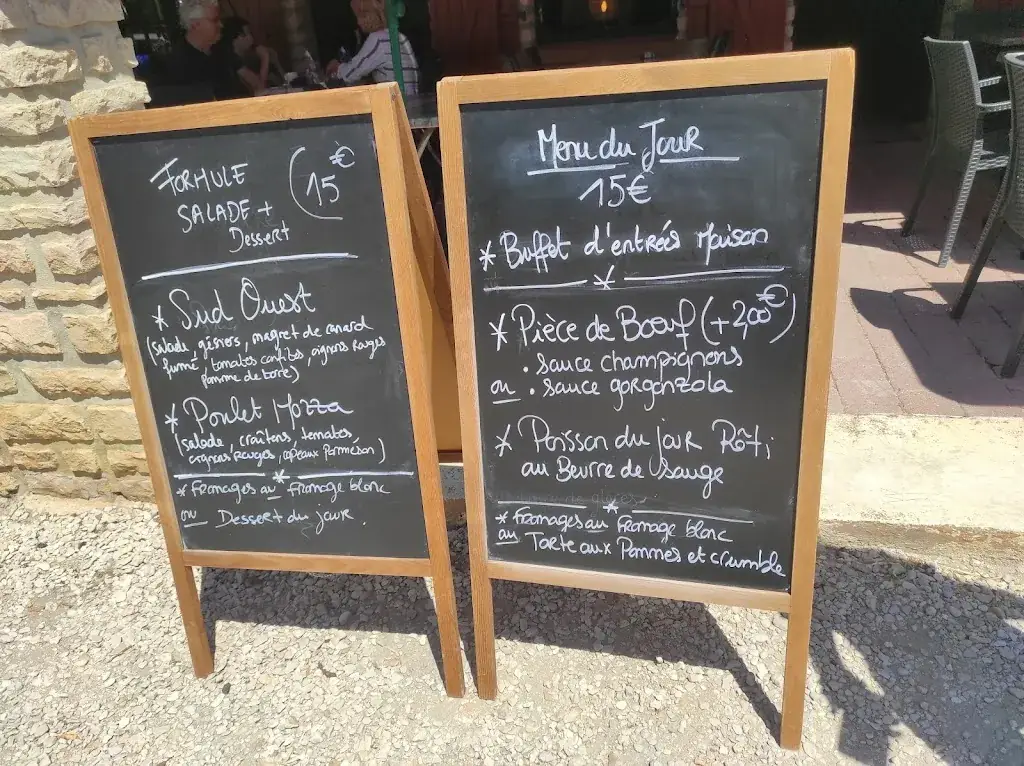 FORMULE
SALADE +
Dessert
(15€
* Sud Ouest
(salade, gésiers, magret de canard
fumé, tomates confites, oignons Rouges
Pomme de terre)
* Poulet Mozza
(salade, croûtons, tomates,
oignons Rouges, copeaux Parmesan)
*
* Fromages ou fromage blanc
ou Dessert du jour.
Menu du Jour
15€
* Buffet d'entrées Maison
*
* Pièce de Bœuf (+2,00€)
. sauce champignons
ou . sauce gorgonzola
* Poisson du jour Rôti
au Beurre de Sauge
*
* Fromages au fromage blanc
ou Tarte aux Pommes et crumble